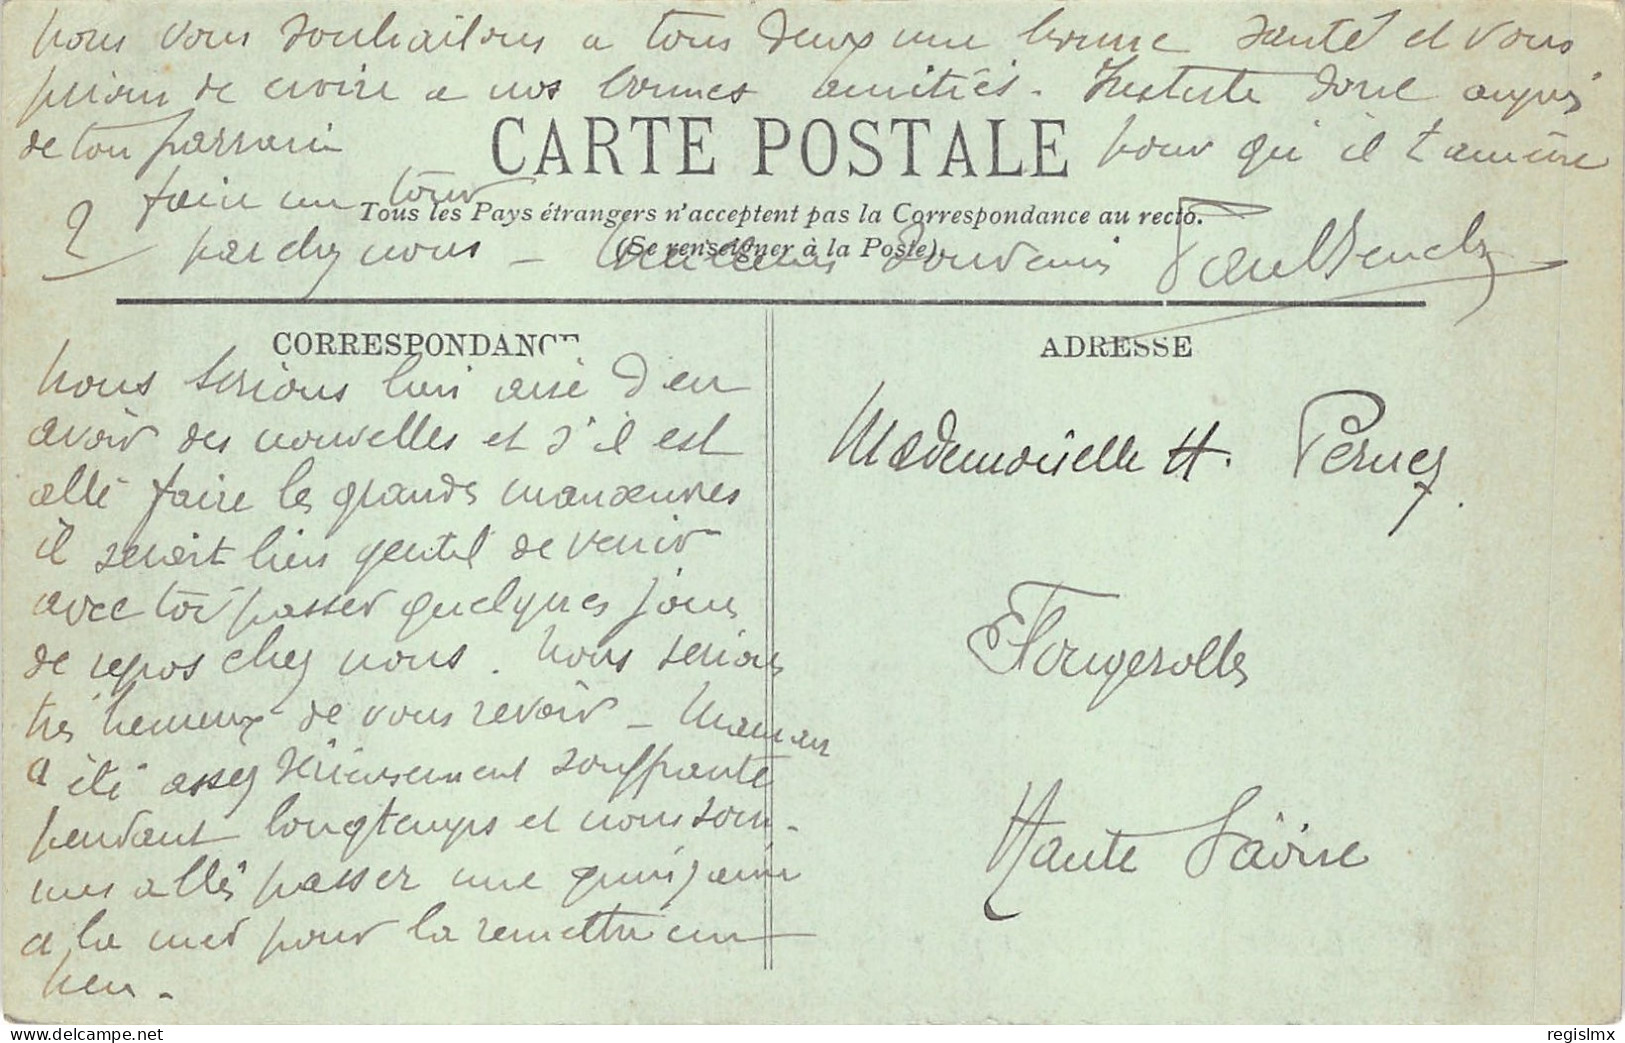 Nous serions bien aise d'en
avoir des nouvelles et s'il est
allé faire les grandes manœuvres
il serait bien gentil de venir
avec toi passer quelques jours
de repos chez nous. Nous serions
très heureux de vous revoir – Maman
a été assez sérieusement souffrante
pendant longtemps et nous som-
mes allés passer une quinzaine
a la mer pour la remettre un
peu.
Nous vous souhaitons a tous deux une bonne santé et vous
prions de croire a nos bonnes amitiés. Insiste donc auprès
de ton parrain pour qu'il t'amène
faire un tour
2 par chez nous – Meilleurs Souvenirs Paul
CARTE POSTALE
Tous les Pays étrangers n'acceptent pas la Correspondance au recto.
(Se renseigner à la Poste)
CORRESPONDANCE
ADRESSE
Mademoiselle H. Pernez
Fougerolles
Haute Saône
delcampe.net
regislmx